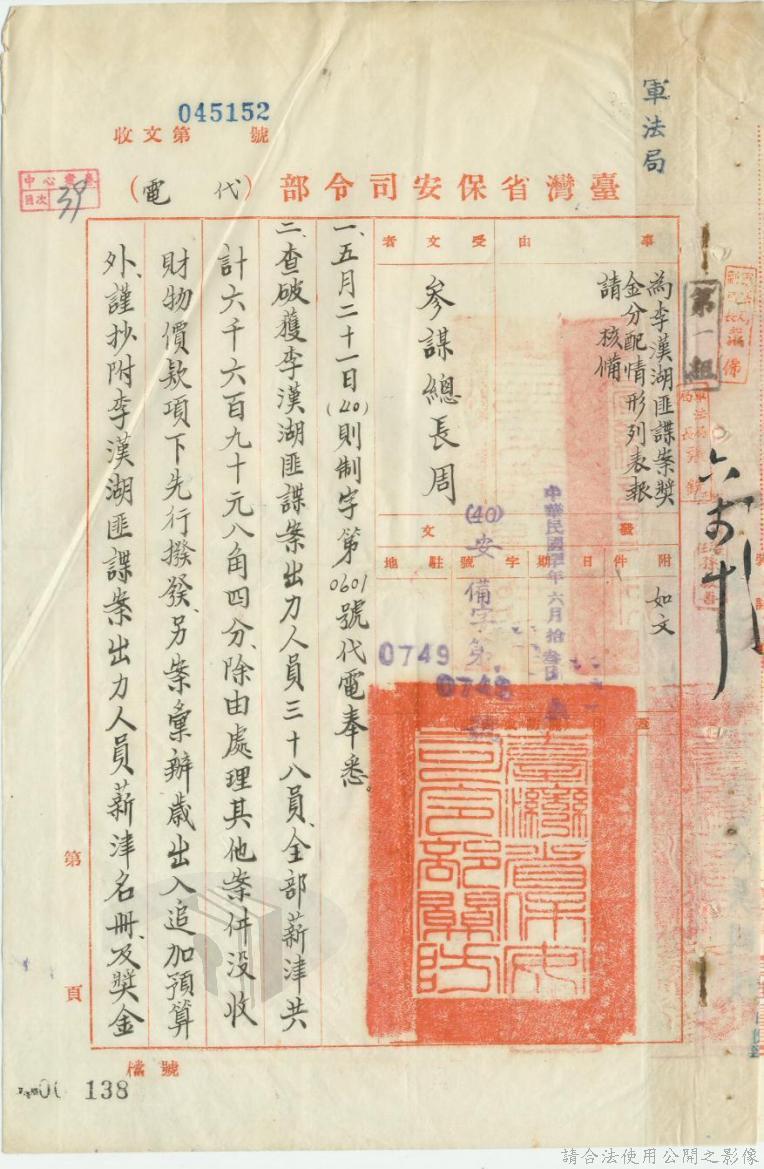 軍法局
045152
收文第　號
臺灣省保安司令部（代電）
中心
目次
39
第一組
事由
為李漢湖匪諜案獎
金分配情形列表報
請核備
受文者
參謀總長周
發文
附件
如文
日期
中華民國四十年六月拾叁日
字號
(40)安備字第
0749
0749
號
駐地
臺灣省保安司令部關防
一、五月二十一日(40)則制字第0601號代電奉悉。
二、查破獲李漢湖匪諜案出力人員三十八員、全部薪津共
計六千六百九十元八角四分、除由處理其他案件沒收
財物價款項下先行撥發、另案彙辦歲出入追加預算
外、謹抄附李漢湖匪諜案出力人員薪津名冊、及獎金
第　頁
檔號
138
請合法使用公開之影像